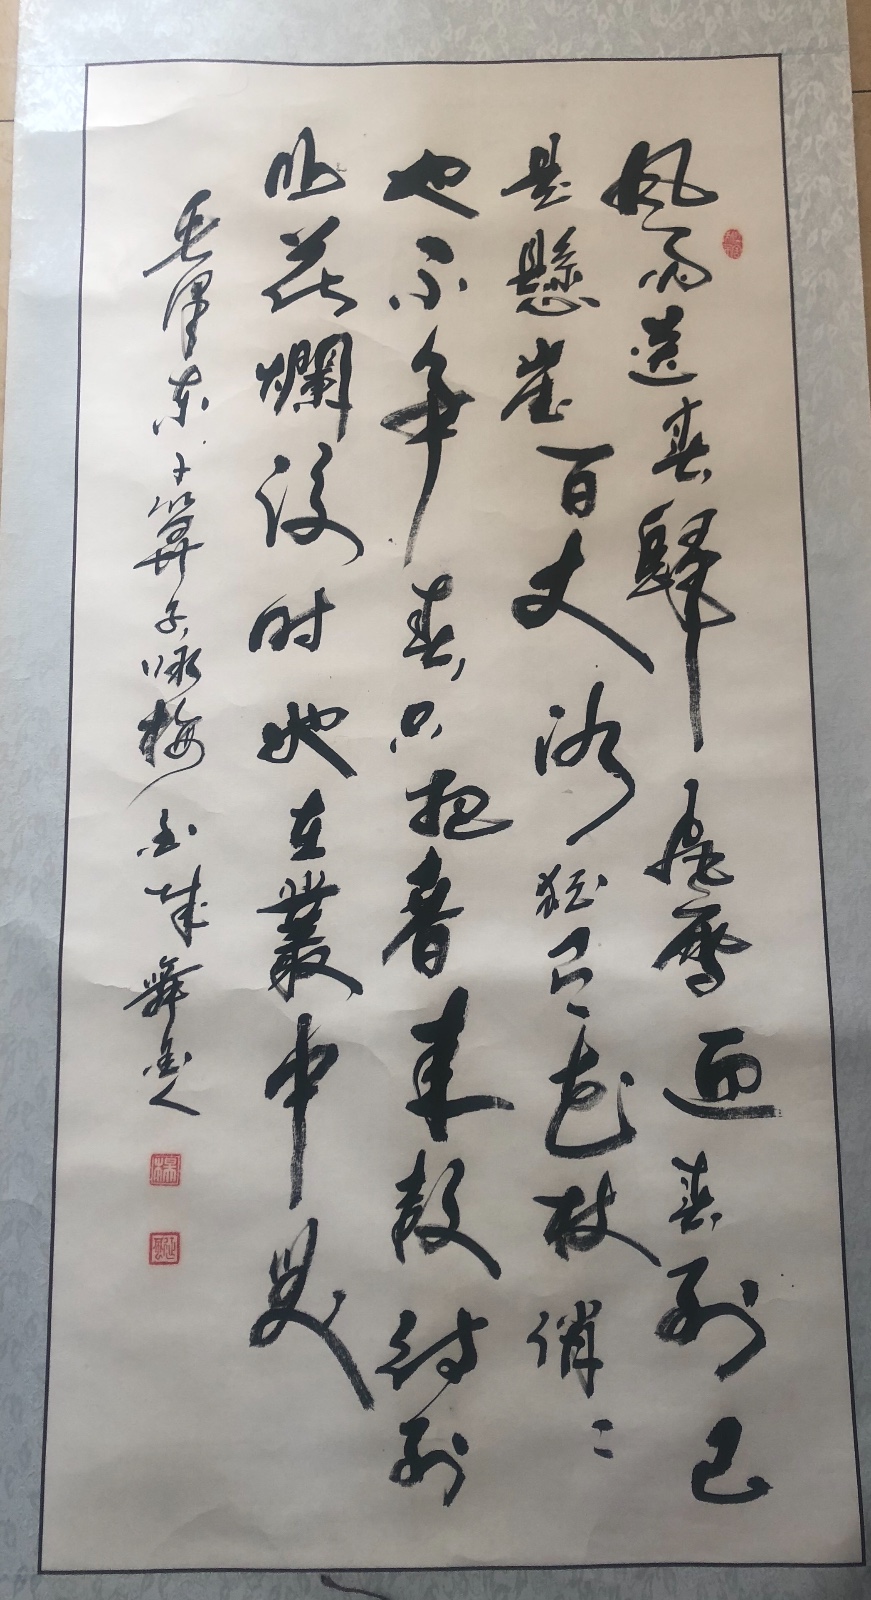 風雨送春歸飛雪迎春到已
是懸崖百丈冰猶有花枝俏々
也不争春只把春来報待到
山花爛漫时她在叢中笑
毛澤東卜算子咏梅